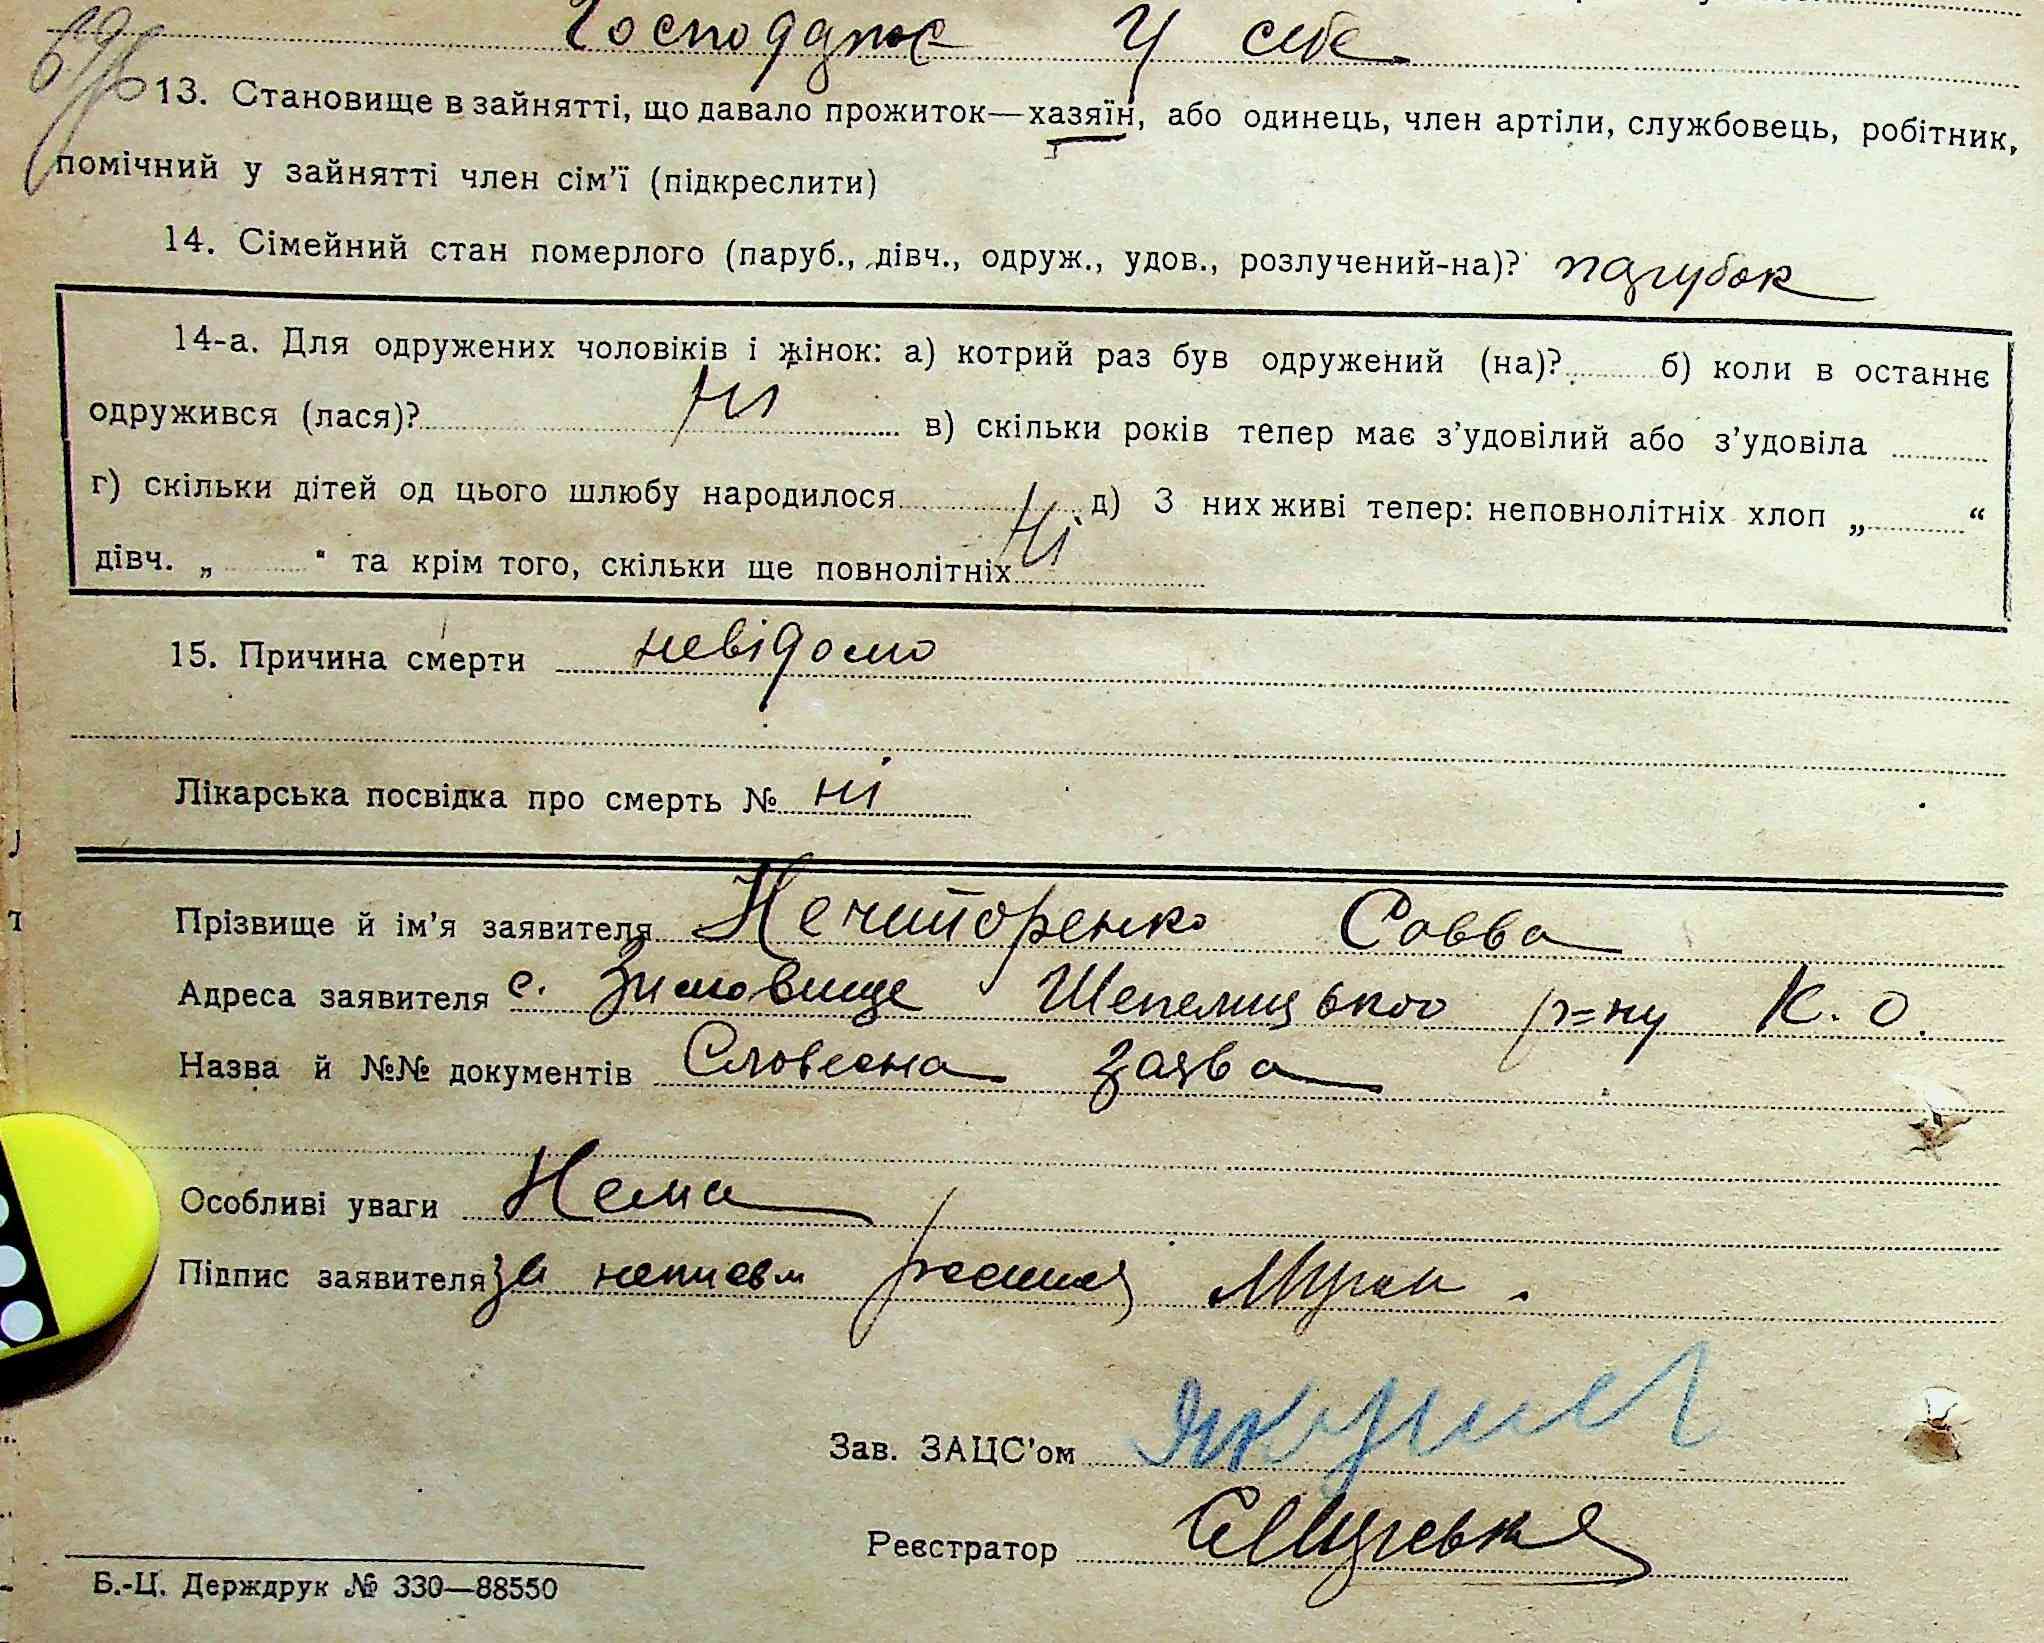 Господарює у себе
13. Становище в зайнятті, що давало прожиток—хазяїн, або одинець, член артіли, службовець, робітник,
помічний у зайнятті член сім'ї (підкреслити)
14. Сімейний стан померлого (паруб., дівч., одруж., удов., розлучений-на)? парубок
14-а. Для одружених чоловіків і жінок: а) котрий раз був одружений (на)? б) коли в останнє
одружився (лася)? Ні в) скільки років тепер має з'удовілий або з'удовіла
г) скільки дітей од цього шлюбу народилося д) З них живі тепер: неповнолітніх хлоп „ “
дівч. „ “ та крім того, скільки ще повнолітніх Ні
15. Причина смерти невідомо
Лікарська посвідка про смерть № ні
Прізвище й ім'я заявителя Нечипоренко Савва
Адреса заявителя с. Зимовище Шепелицького р=ну К. О.
Назва й №№ документів Словесна заява
Особливі уваги Нема
Підпис заявителя за неписьм
Зав. ЗАЦС'ом
Реєстратор
Б.-Ц. Держдрук № 330—88550